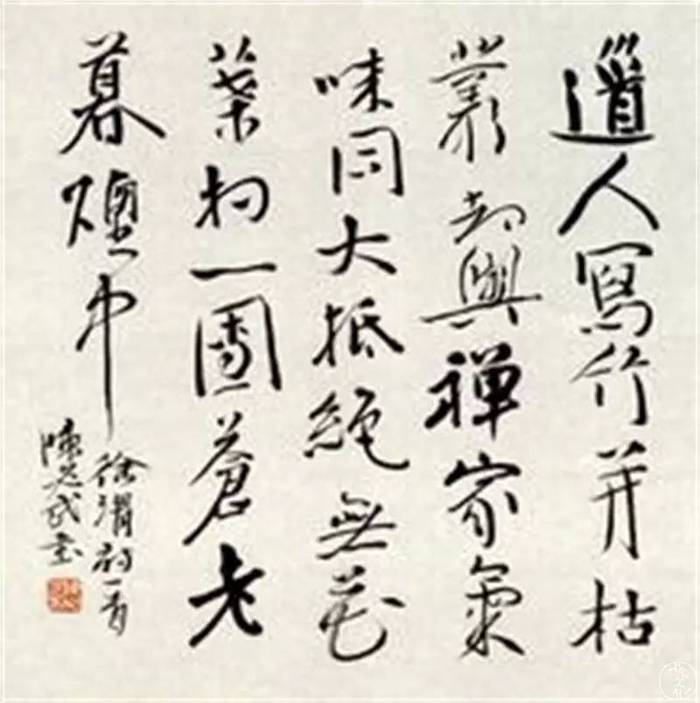 道人寫竹并枯
叢却與禅家氣
味同大抵絕無花
葉相一團蒼老
暮煙中
徐渭詩一首
陳武書